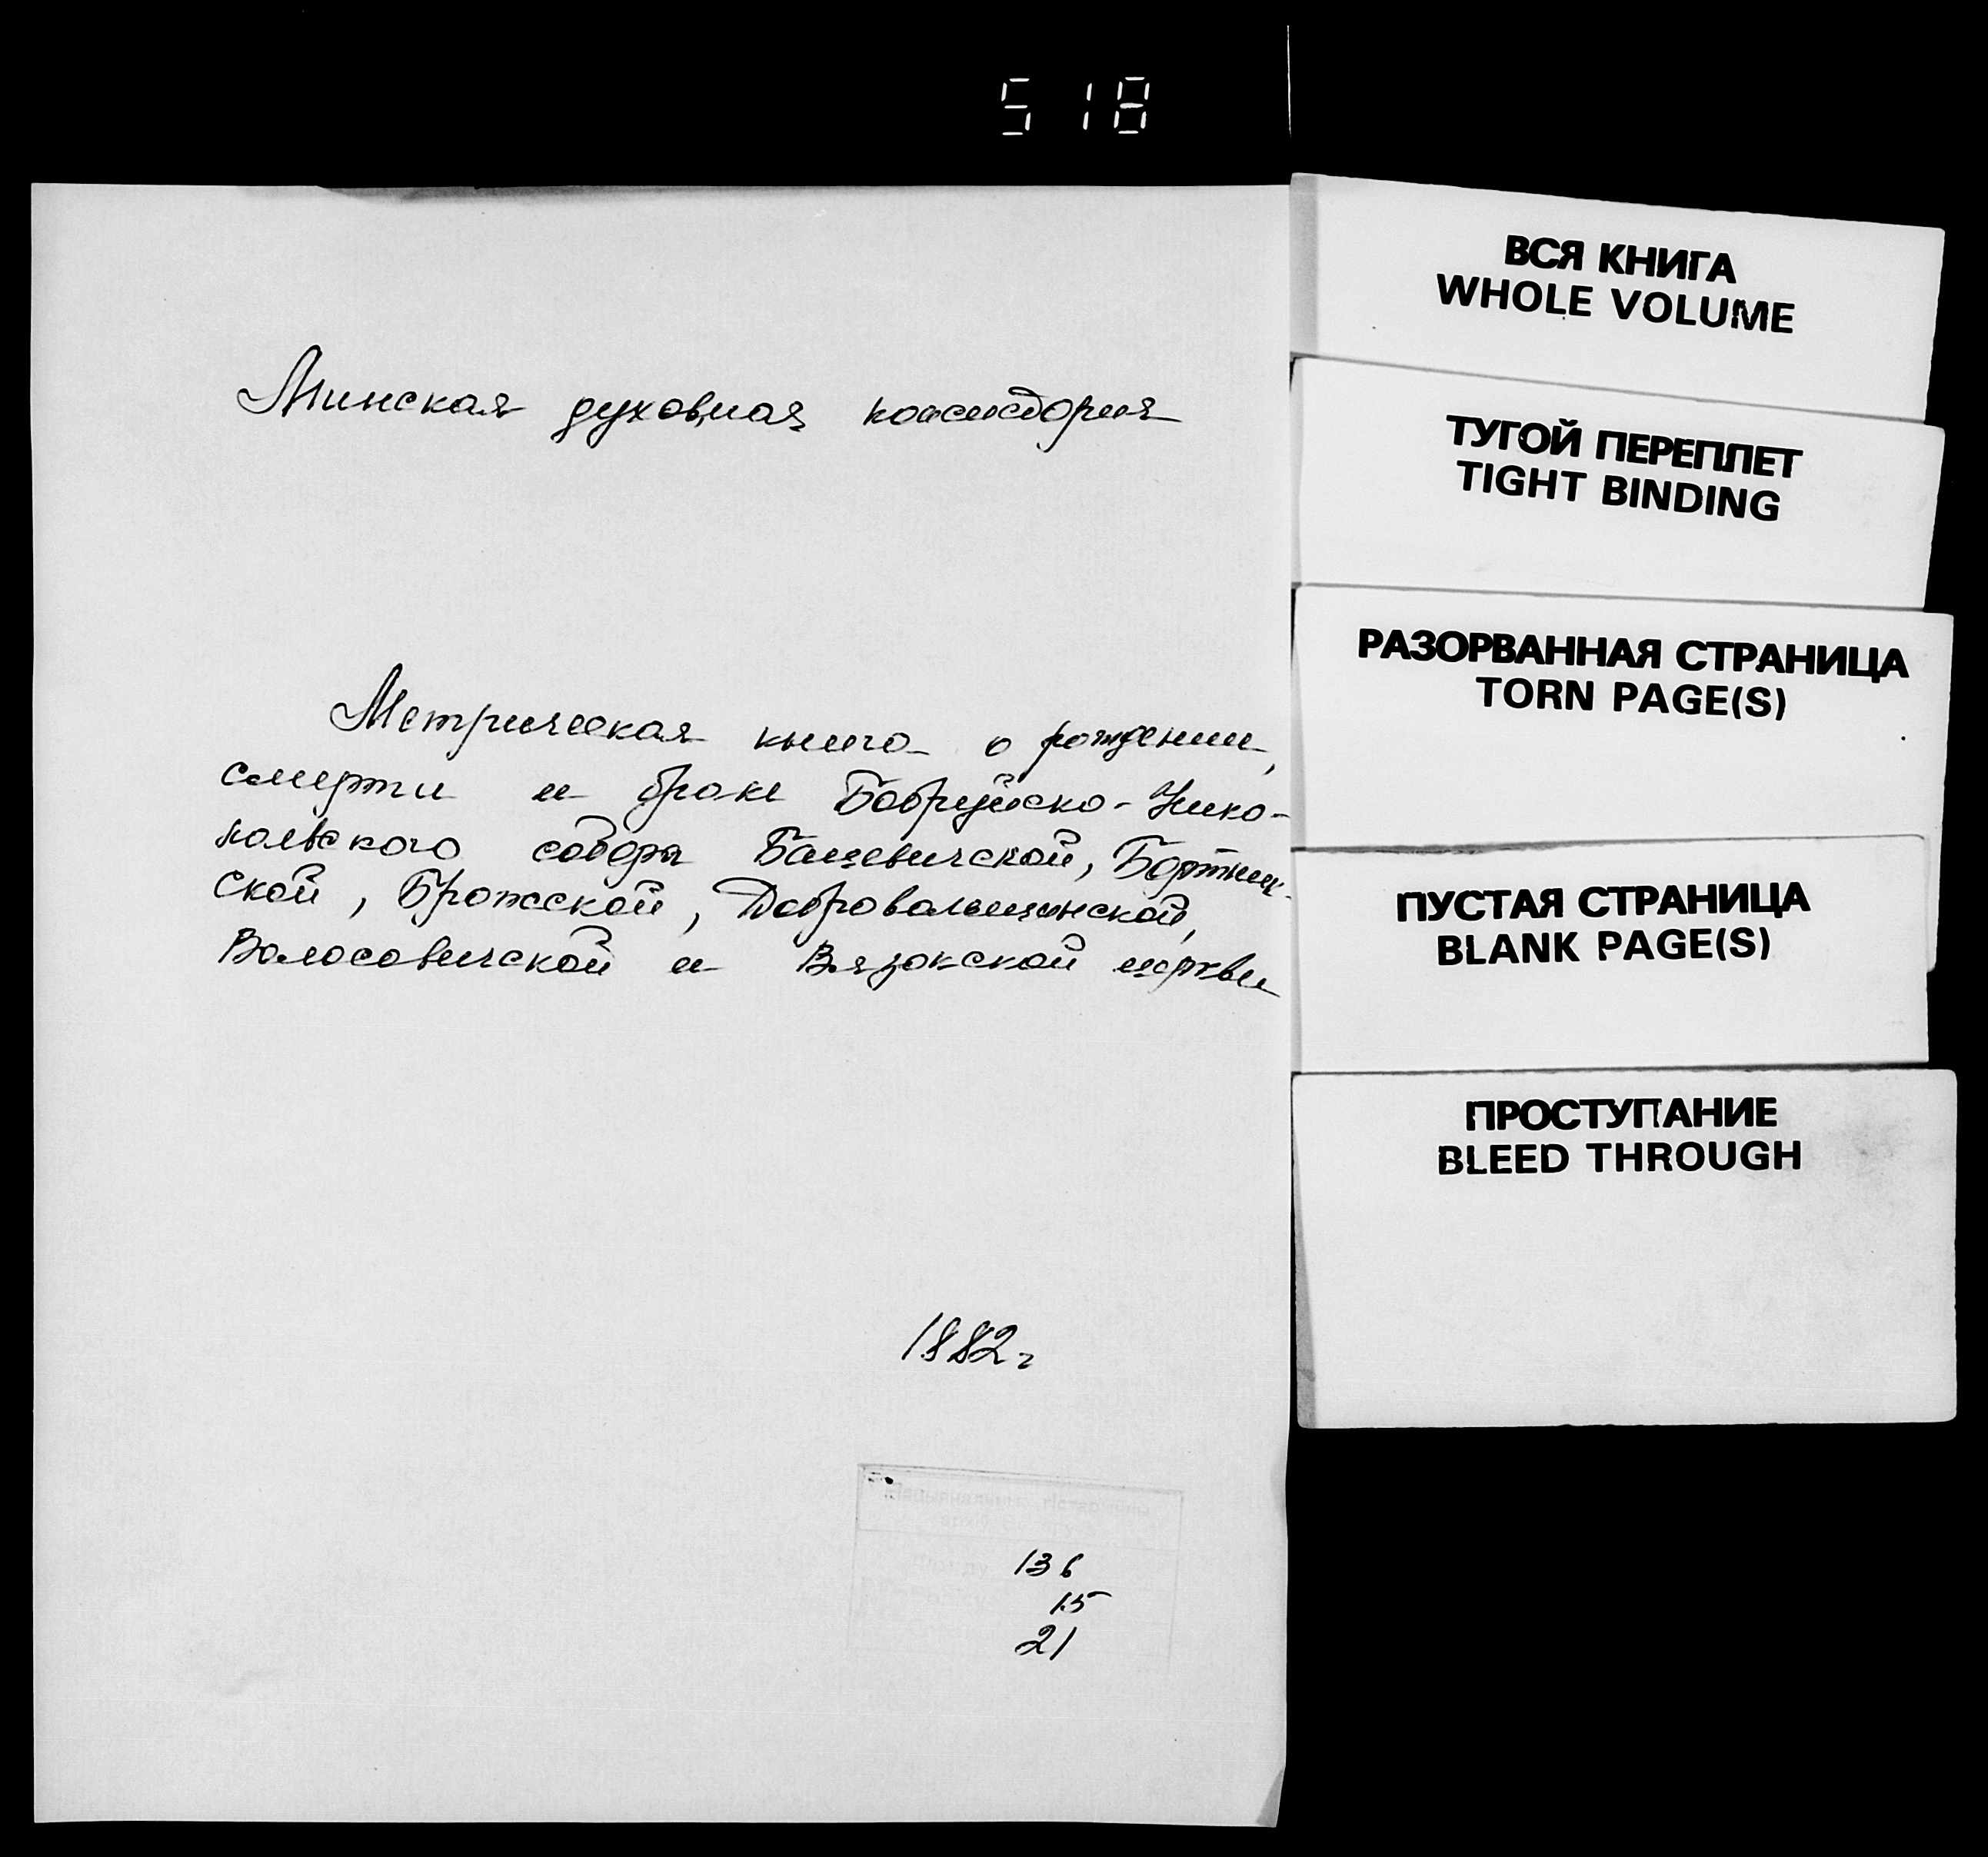 518
Минская духовная консистория
Метрическая книга о рождении,
смерти и браке Бобруйско-Нико-
лаевского собора Бацевичской, Бортни-
ской, Брожской, Добровольщинской,
Волосовичской и Вязокской церкви
1882 г
136
15
21
ВСЯ КНИГА
WHOLE VOLUME
ТУГОЙ ПЕРЕПЛЕТ
TIGHT BINDING
РАЗОРВАННАЯ СТРАНИЦА
TORN PAGE(S)
ПУСТАЯ СТРАНИЦА
BLANK PAGE(S)
ПРОСТУПАНИЕ
BLEED THROUGH